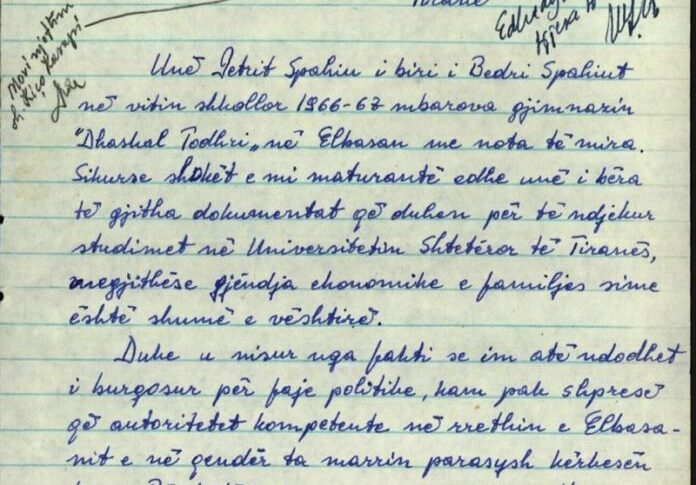 Tiranë
Edhe
tjera
Mori njoftim
sh. Kiço
Unë Jetrit Spahiu i biri i Bedri Spahiut
në vitin shkollor 1966-67 mbarova gjimnazin
"Dhaskal Todhri„ në Elbasan me nota të mira.
Sikurse shokët e mi maturantë edhe unë i bëra
të gjitha dokumentat që duhen për të ndjekur
studimet në Universitetin Shtetëror të Tiranës,
megjithëse gjëndja ekonomike e familjes sime
është shumë e vështirë.
Duke u nisur nga fakti se im atë ndodhet
i burgosur për faje politike, kam pak shpresë
që autoritetet kompetente në rrethin e Elbasa-
nit e në qendër ta marrin parasysh kërkesën